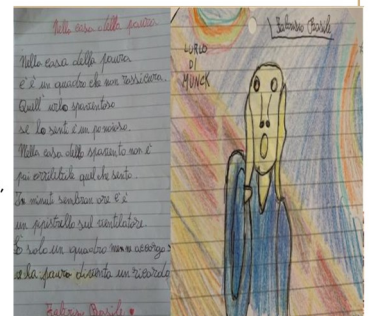 Nella casa della paura
Nella casa della paura
c'è un quadro che non rassicura.
Quell'urlo spaventoso
se lo senti è un pensoso.
Nella casa dello spavento non è
poi orribile quel che sento.
In minuti sembran ore c'è
un pipistrello sul ventilatore.
È solo un quadro me ne accorgo
e la paura diventa un ricordo
Fabrizio Basile
Basile
L'URLO
DI
MUNCK